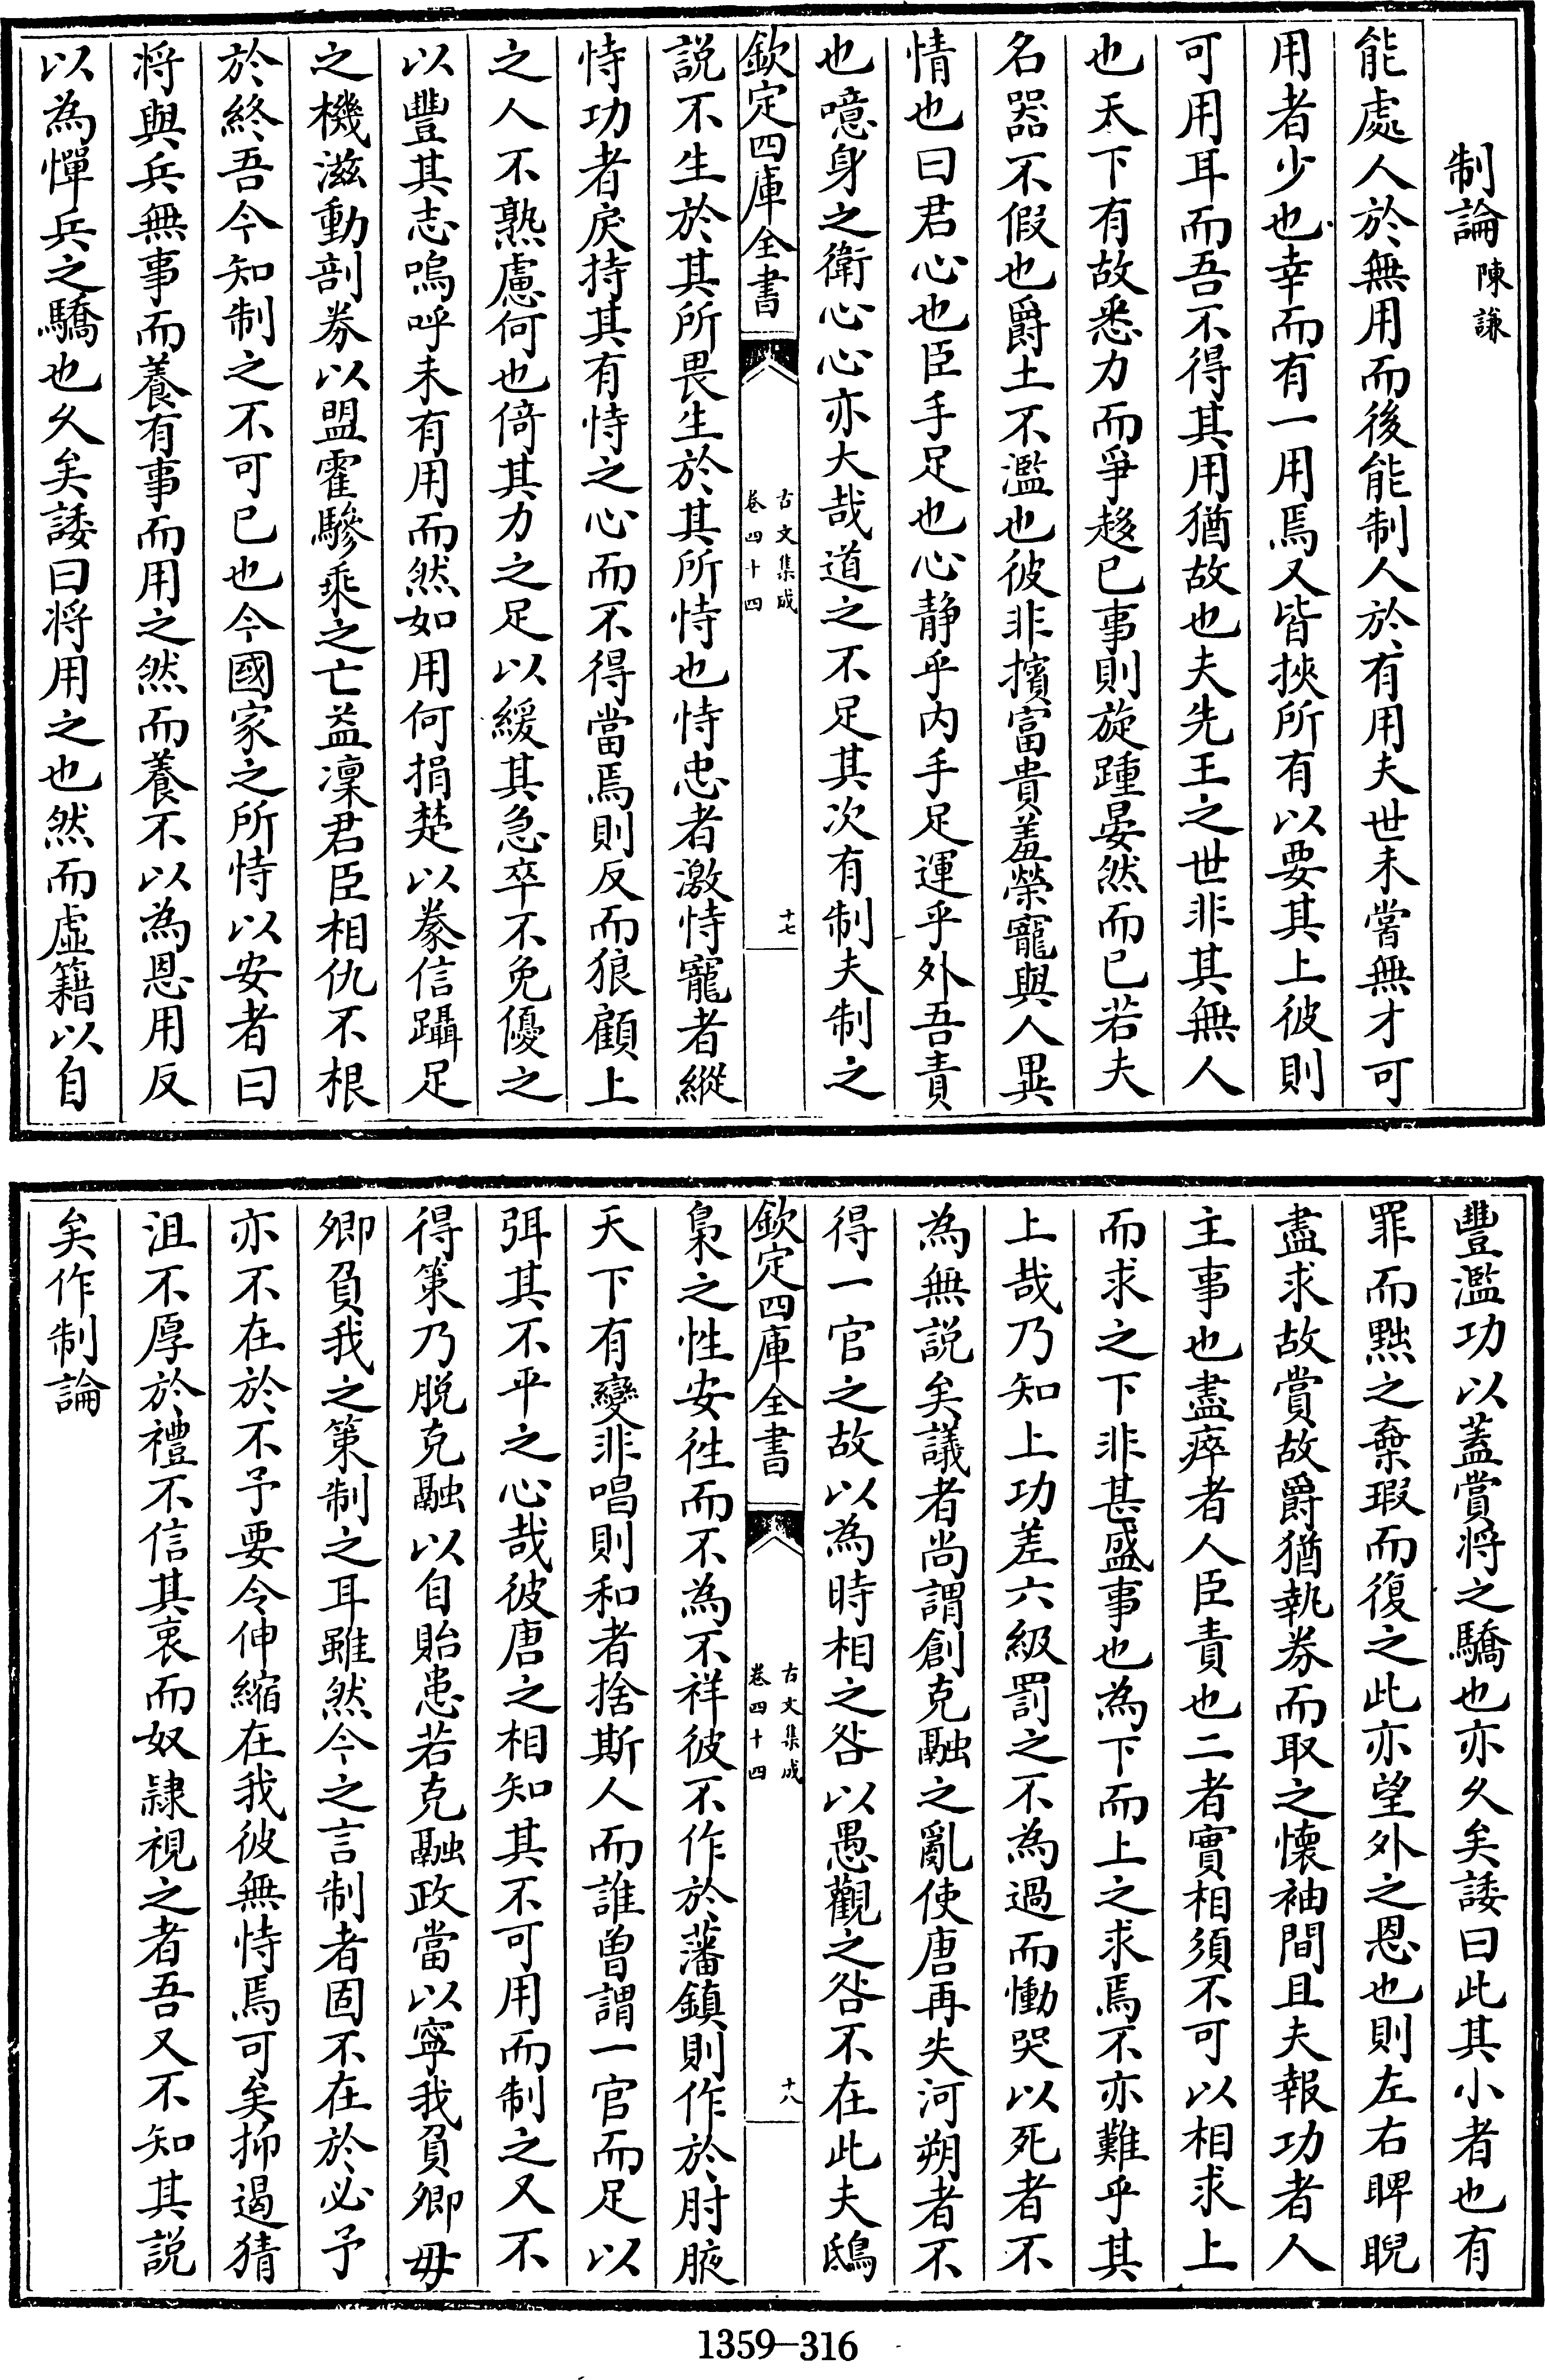 制論陳謙
能處人於無用而後能制人於有用夫世未嘗無才可
用者少也幸而有一用焉又皆挾所有以要其上彼則
可用耳而吾不得其用猶故也夫先王之世非其無人
也天下有故悉力而爭趍已事則旋踵晏然而已若夫
名器不假也爵土不濫也彼非擯富貴羞榮寵與人異
情也曰君心也臣手足也心静乎内手足運乎外吾責
也噫身之衛心心亦大哉道之不足其次有制夫制之
欽定四庫全書
古文集成
卷四十四
十七
説不生於其所畏生於其所恃也恃忠者激恃寵者縱
恃功者戾持其有恃之心而不得當焉則反而狼顧上
之人不熟慮何也倚其力之足以緩其急卒不免優之
以豐其志嗚呼未有用而然如用何捐楚以豢信躡足
之機滋動剖券以盟霍驂乘之亡益凜君臣相仇不根
於終吾今知制之不可已也今國家之所恃以安者曰
将與兵無事而養有事而用之然而養不以為恩用反
以為憚兵之驕也久矣諉曰将用之也然而虛籍以自
豐濫功以蓋賞将之驕也亦久矣諉曰此其小者也有
罪而黜之棄瑕而復之此亦望外之恩也則左右睥睨
盡求故賞故爵猶執券而取之懐袖間且夫報功者人
主事也盡瘁者人臣責也二者實相須不可以相求上
而求之下非甚盛事也為下而上之求焉不亦難乎其
上哉乃知上功差六級罰之不為過而慟哭以死者不
為無説矣議者尚謂創克融之亂使唐再失河朔者不
得一官之故以為時相之咎以愚觀之咎不在此夫鴟
欽定四庫全書
古文集成
卷四十四
十八
梟之性安徃而不為不祥彼不作於藩鎮則作於肘腋
天下有變非唱則和者捨斯人而誰曽謂一官而足以
弭其不平之心哉彼唐之相知其不可用而制之又不
得策乃脱克融以自貽患若克融政當以寧我負卿毋
卿負我之策制之耳雖然今之言制者固不在於必予
亦不在於不予要令伸縮在我彼無恃焉可矣抑遏猜
沮不厚於禮不信其衷而奴隷視之者吾又不知其説
矣作制論
1359-316